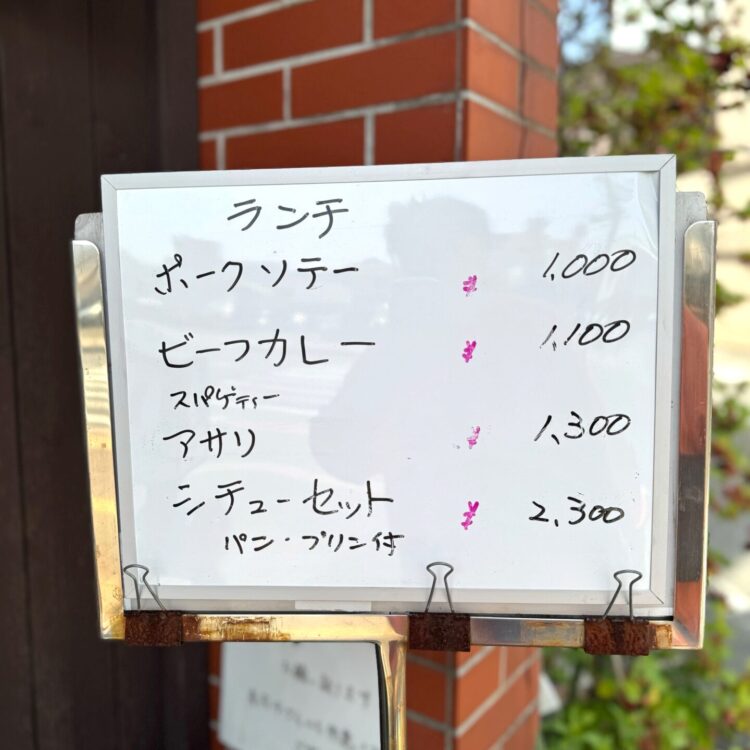 ランチ
ポークソテー ¥ 1,000
ビーフカレー ¥ 1,100
スパゲティー
アサリ ¥ 1,300
シチューセット ¥ 2,300
パン・プリン付